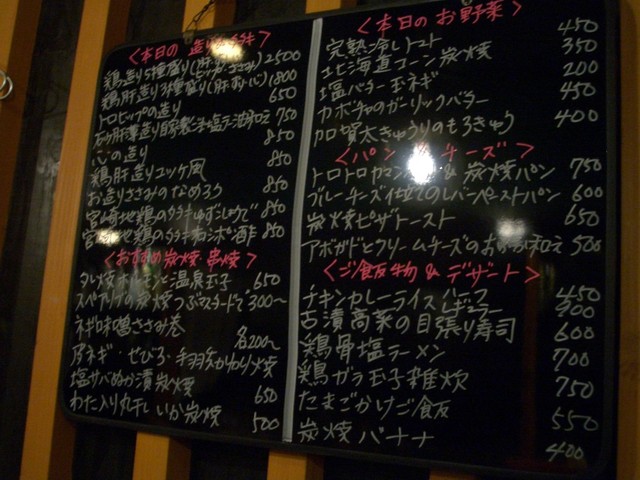 <本日の 造り
鶏造り5種盛り(肝・ささみ) 2500
鶏肝造り3種盛り(肝・ズリ・心) 1800
トロヒップの造り 650
肝薄造り自家製 塩ラー油和え 750
心の造り 850
鶏肝造りユッケ風 850
お造りささみのなめろう 850
宮崎地鶏のタタキゆずしょうゆで 850
宮崎地鶏のタタキ ポン酢 850
<おすすめ炭焼・串焼>
タレ焼ホルモンと温泉玉子 650
スペアリブの炭焼つぶマスタードで 300〜
ネギ味噌ささみ巻
各200〜
皮ネギ・せびろ・手羽先かわり焼
塩サバぬか漬炭焼 650
わた入り丸干しいか炭焼 500
<本日のお野菜>
完熟冷しトマト 450
北海道コーン炭焼 350
塩バター玉ネギ 200
カボチャのガーリックバター 450
加賀太きゅうりのもろきゅう 400
<パン チーズ>
トロトロカマン & 炭焼パン 750
ブルーチーズ仕立てのレバーペーストパン 600
炭焼ピザトースト 650
アボガドとクリームチーズのおかか和え 500
<ご飯物&デザート>
チキンカレーライス ハーフ 450
レギュラー 900
古漬高菜の目張り寿司 600
鶏骨塩ラーメン 700
鶏ガラ玉子雑炊 750
たまごかけご飯 550
炭焼バナナ 400